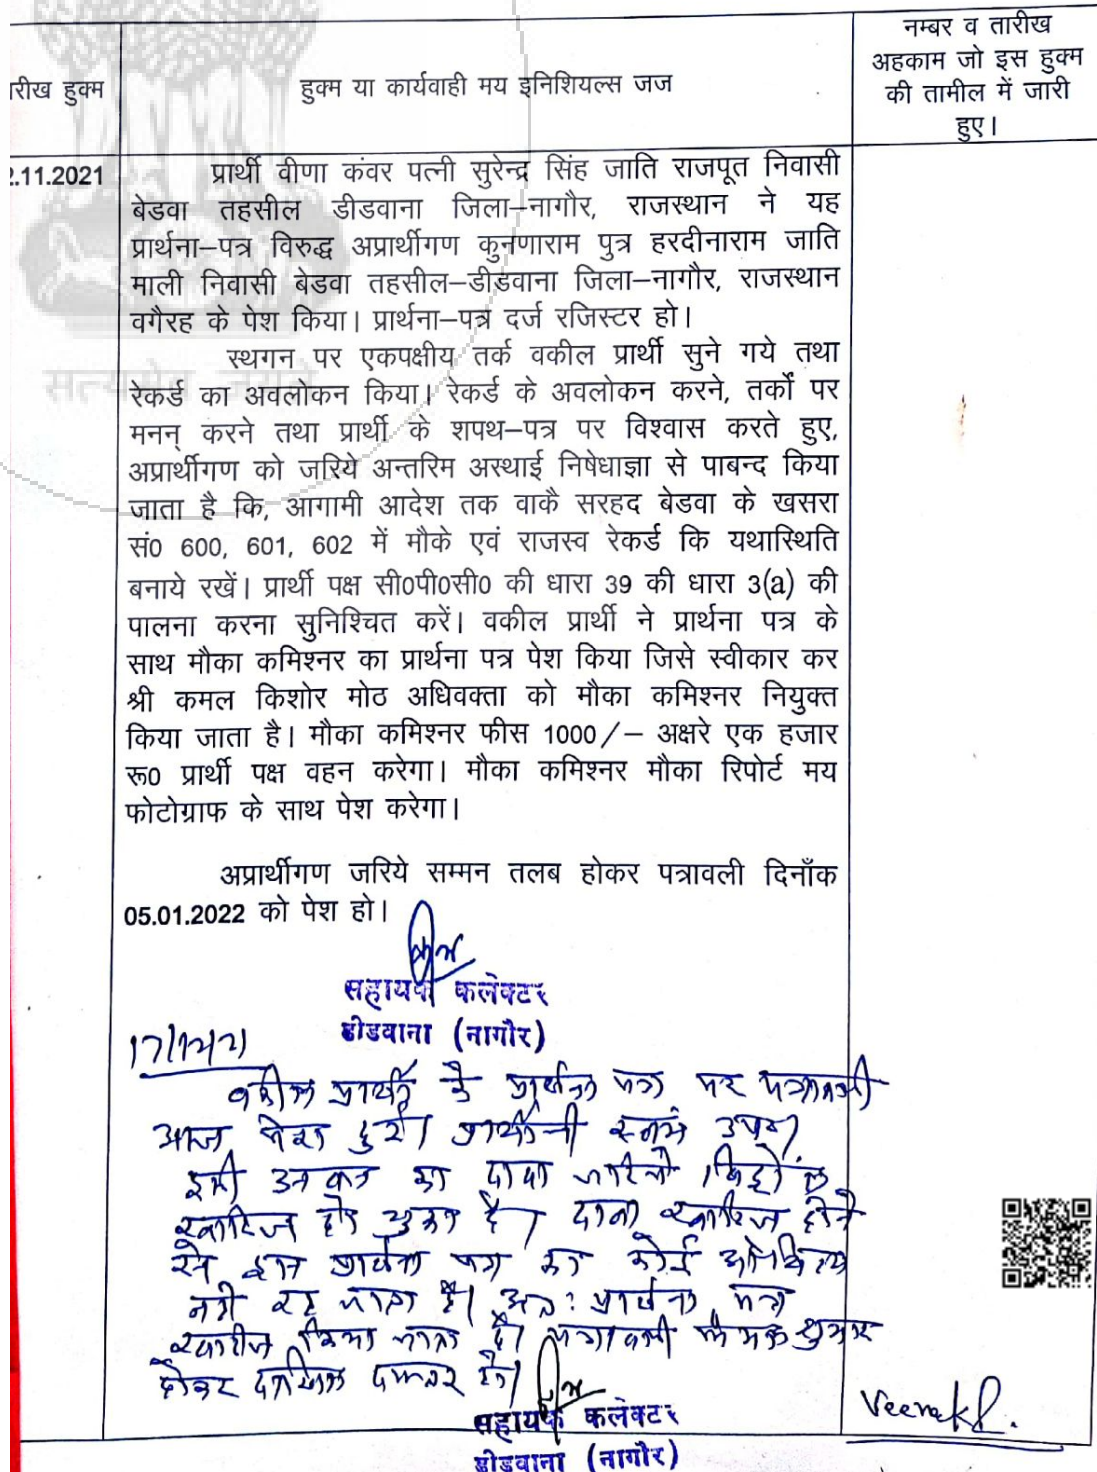 रीख हुक्म
हुक्म या कार्यवाही मय इनिशियल्स जज
नम्बर व तारीख
अहकाम जो इस हुक्म
की तामील में जारी
हुए।
2.11.2021
प्रार्थी वीणा कंवर पत्नी सुरेन्द्र सिंह जाति राजपूत निवासी
बेडवा तहसील डीडवाना जिला–नागौर, राजस्थान ने यह
प्रार्थना–पत्र विरुद्ध अप्रार्थीगण कुनणाराम पुत्र हरदीनाराम जाति
माली निवासी बेडवा तहसील–डीडवाना जिला–नागौर, राजस्थान
वगैरह के पेश किया। प्रार्थना–पत्र दर्ज रजिस्टर हो।
स्थगन पर एकपक्षीय तर्क वकील प्रार्थी सुने गये तथा
रेकर्ड का अवलोकन किया। रेकर्ड के अवलोकन करने, तर्कों पर
मनन् करने तथा प्रार्थी के शपथ–पत्र पर विश्वास करते हुए,
अप्रार्थीगण को जरिये अन्तरिम अस्थाई निषेधाज्ञा से पाबन्द किया
जाता है कि, आगामी आदेश तक वाकै सरहद बेडवा के खसरा
सं0 600, 601, 602 में मौके एवं राजस्व रेकर्ड कि यथास्थिति
बनाये रखें। प्रार्थी पक्ष सी0पी0सी0 की धारा 39 की धारा 3(a) की
पालना करना सुनिश्चित करें। वकील प्रार्थी ने प्रार्थना पत्र के
साथ मौका कमिश्नर का प्रार्थना पत्र पेश किया जिसे स्वीकार कर
श्री कमल किशोर मोठ अधिवक्ता को मौका कमिश्नर नियुक्त
किया जाता है। मौका कमिश्नर फीस 1000/– अक्षरे एक हजार
रू0 प्रार्थी पक्ष वहन करेगा। मौका कमिश्नर मौका रिपोर्ट मय
फोटोग्राफ के साथ पेश करेगा।
अप्रार्थीगण जरिये सम्मन तलब होकर पत्रावली दिनाँक
05.01.2022 को पेश हो।
सहायक कलेक्टर
डीडवाना (नागौर)
17/12/21
वकील प्रार्थी के प्रार्थना पत्र पर पत्रावली
आज पेश हुई। प्रार्थीनी स्वयं उप0।
इसी उनवान का दावा
खारिज हो चुका है। दावा खारिज होने
से इस प्रार्थना पत्र का कोई औचित्य
नही रह जाता है। अतः प्रार्थना पत्र
खारीज किया जाता है। पत्रावली फैसल शुमार
होकर दाखिल दफ्तर हो।
सहायक कलेक्टर
डीडवाना (नागौर)